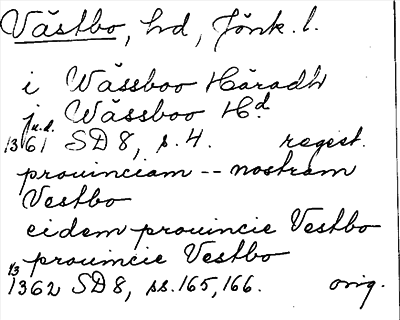 Västbo, hd, Jönk. l.
i Wässboo Häradh
j Wässboo Hd
u.d.
1361 SD 8, s. 4. regest.
prouinciam -- nostram
Vestbo
eidem prouincie Vestbo
prouincie Vestbo
1362 SD 8, ss. 165, 166. orig.